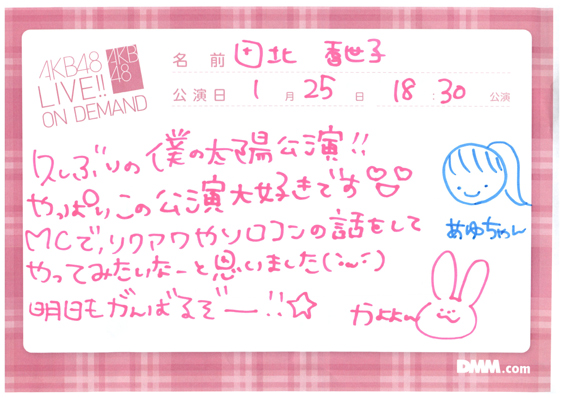 AKB48
LIVE!!
ON DEMAND
AKB
48
名前 田北 香世子
公演日 1月25日 18:30公演
久しぶりの僕の太陽公演!!
やっぱりこの公演大好きです♡♡
MCで、リクアワやソロコンの話をして
やってみたいなーと思いました(˙ᵕ˙)
明日もがんばるぞー!!☆
あゆちゃん
かよよん
DMM.com